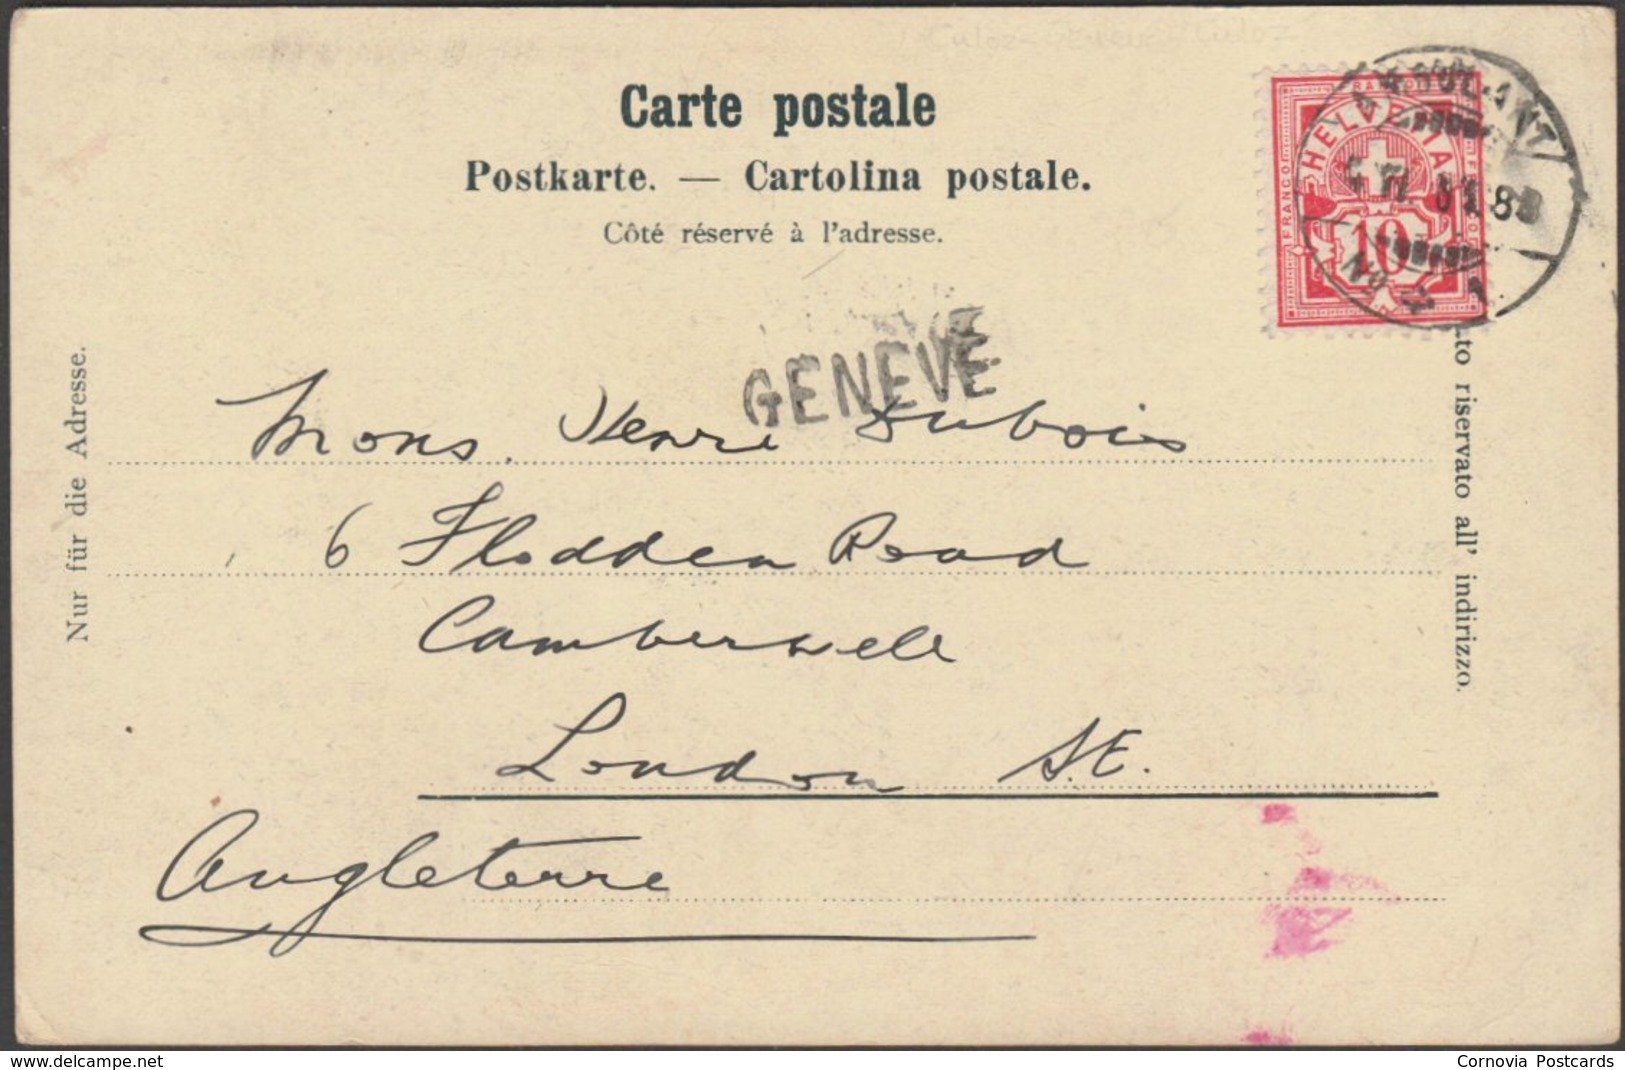 Carte postale
Postkarte. — Cartolina postale.
Côté réservé à l'adresse.
AMBULANT
HELVETIA
FRANCO
10
No 1
GENEVE
Nur für die Adresse.
Mons. Henri Dubois
6 Flodden Road
Camberwell
London S.E.
Angleterre
to riservato all' indirizzo.
delcampe.net
Cornovia Postcards